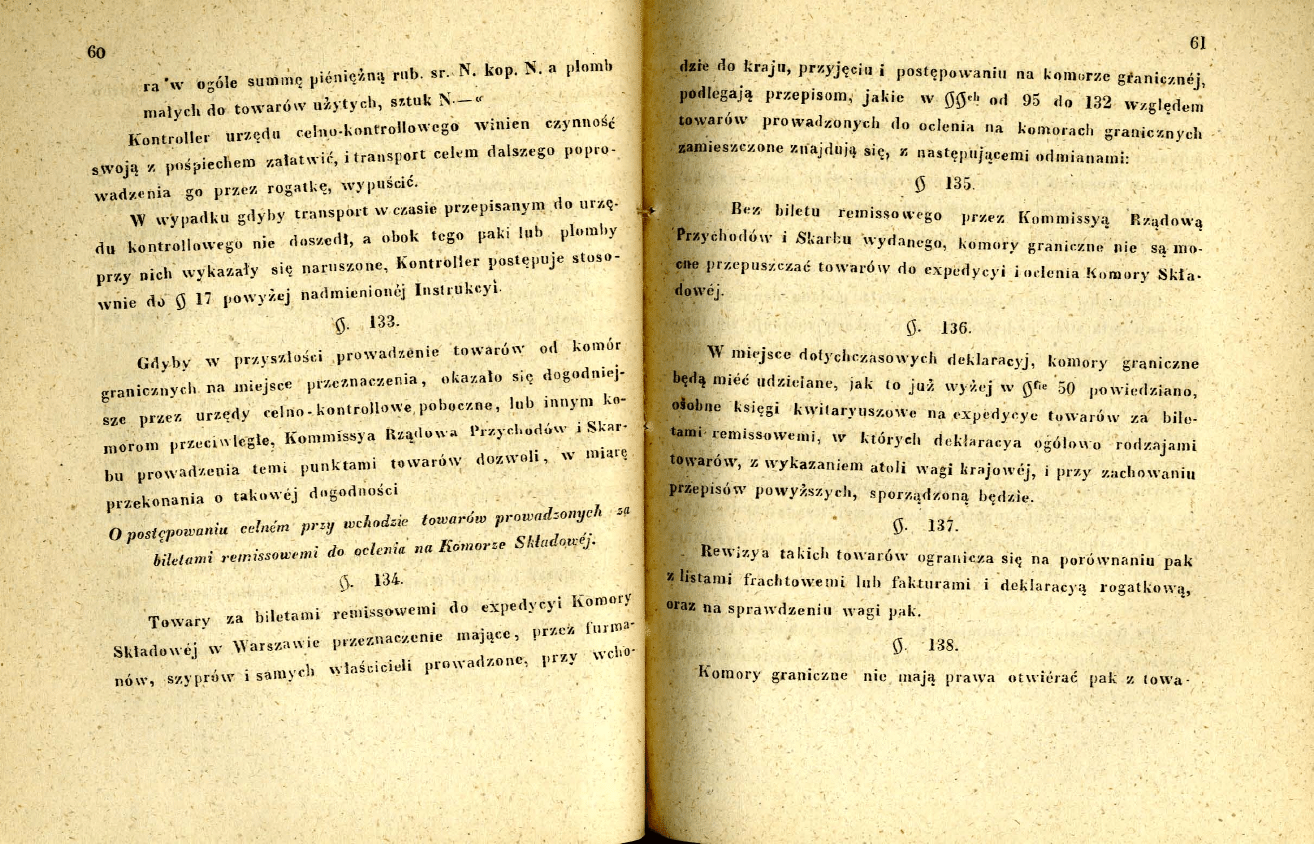 60
ra w ogóle summę piéniężną rub. sr. N. kop. N. a plomb
małych do towarów użytych, sztuk N.—“
Kontroller urzędu celno-kontrollowego winien czynność
swoją z pośpiechem załatwić, i transport celem dalszego popro-
wadzenia go przez rogatkę, wypuścić.
W wypadku gdyby transport w czasie przepisanym do urzę-
du kontrollowego nie doszedł, a obok tego paki lub plomby
przy nich wykazały się naruszone, Kontroller postępuje stoso-
wnie do § 17 powyżej nadmienionéj Instrukcyi.
§. 133.
Gdyby w przyszłości prowadzenie towarów od komór
granicznych na miejsce przeznaczenia, okazało się dogodniej-
sze przez urzędy celno-kontrollowe poboczne, lub innym ko-
morom przeciwległe, Kommissya Rządowa Przychodów i Skar-
bu prowadzenia temi punktami towarów dozwoli, w miarę
przekonania o takowéj dogodności
O postępowaniu celném przy wchodzie towarów prowadzonych za
biletami remissowemi do oclenia na Komorze Składowéj.
§. 134.
Towary za biletami remissowemi do expedycyi Komory
Składowéj w Warszawie przeznaczenie mające, przez furma-
nów, szyprów i samych właścicieli prowadzone, przy wcho-
61
dzie do kraju, przyjęciu i postępowaniu na komorze granicznéj,
podlegają przepisom, jakie w §§ch od 95 do 132 względem
towarów prowadzonych do oclenia na komorach granicznych
zamieszczone znajdują się, z następującemi odmianami:
§ 135.
Bez biletu remissowego przez Kommissyą Rządową
Przychodów i Skarbu wydanego, komory graniczne nie są mo-
cne przepuszczać towarów do expedycyi i oclenia Komory Skła-
dowéj.
§. 136.
W miejsce dotychczasowych deklaracyj, komory graniczne
będą miéć udzielane, jak to już wyżej w §fie 50 powiedziano,
osobne księgi kwitaryuszowe na expedycye towarów za bile-
tami remissowemi, w których deklaracya ogółowo rodzajami
towarów, z wykazaniem atoli wagi krajowéj, i przy zachowaniu
przepisów powyższych, sporządzoną będzie.
§. 137.
Rewizya takich towarów ogranicza się na porównaniu pak
z listami frachtowemi lub fakturami i deklaracyą rogatkową,
oraz na sprawdzeniu wagi pak.
§. 138.
Komory graniczne nie mają prawa otwiérać pak z towa-